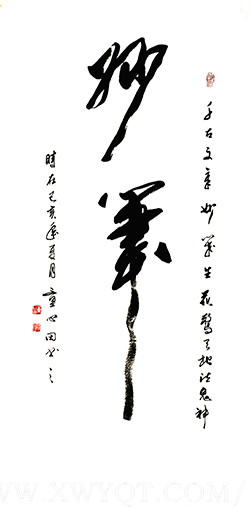 千古文章妙筆生花驚天地泣鬼神
妙筆
時在己亥年夏月童心田书之
WWW.XWYQT.COM